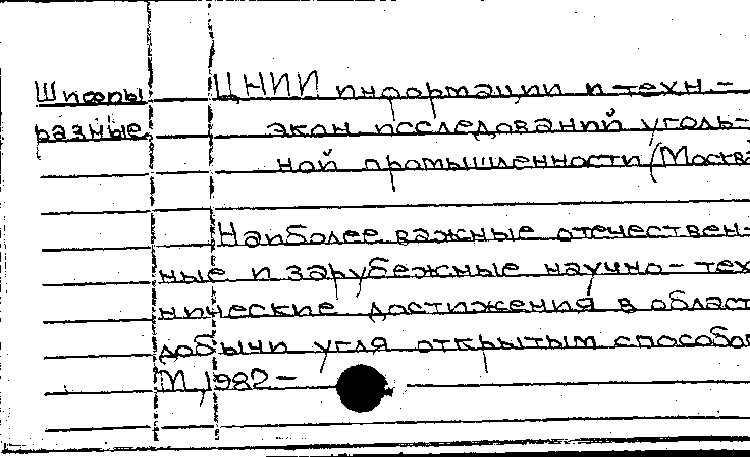 Шифры ЦНИИ информации и техн.-
разные экон исследований уголь-
ной промышленности (Москва
Наиболее важные отечествен-
ные и зарубежные научно-тех
нические достижения в област
добычи угля открытым способо
М, 1982 -